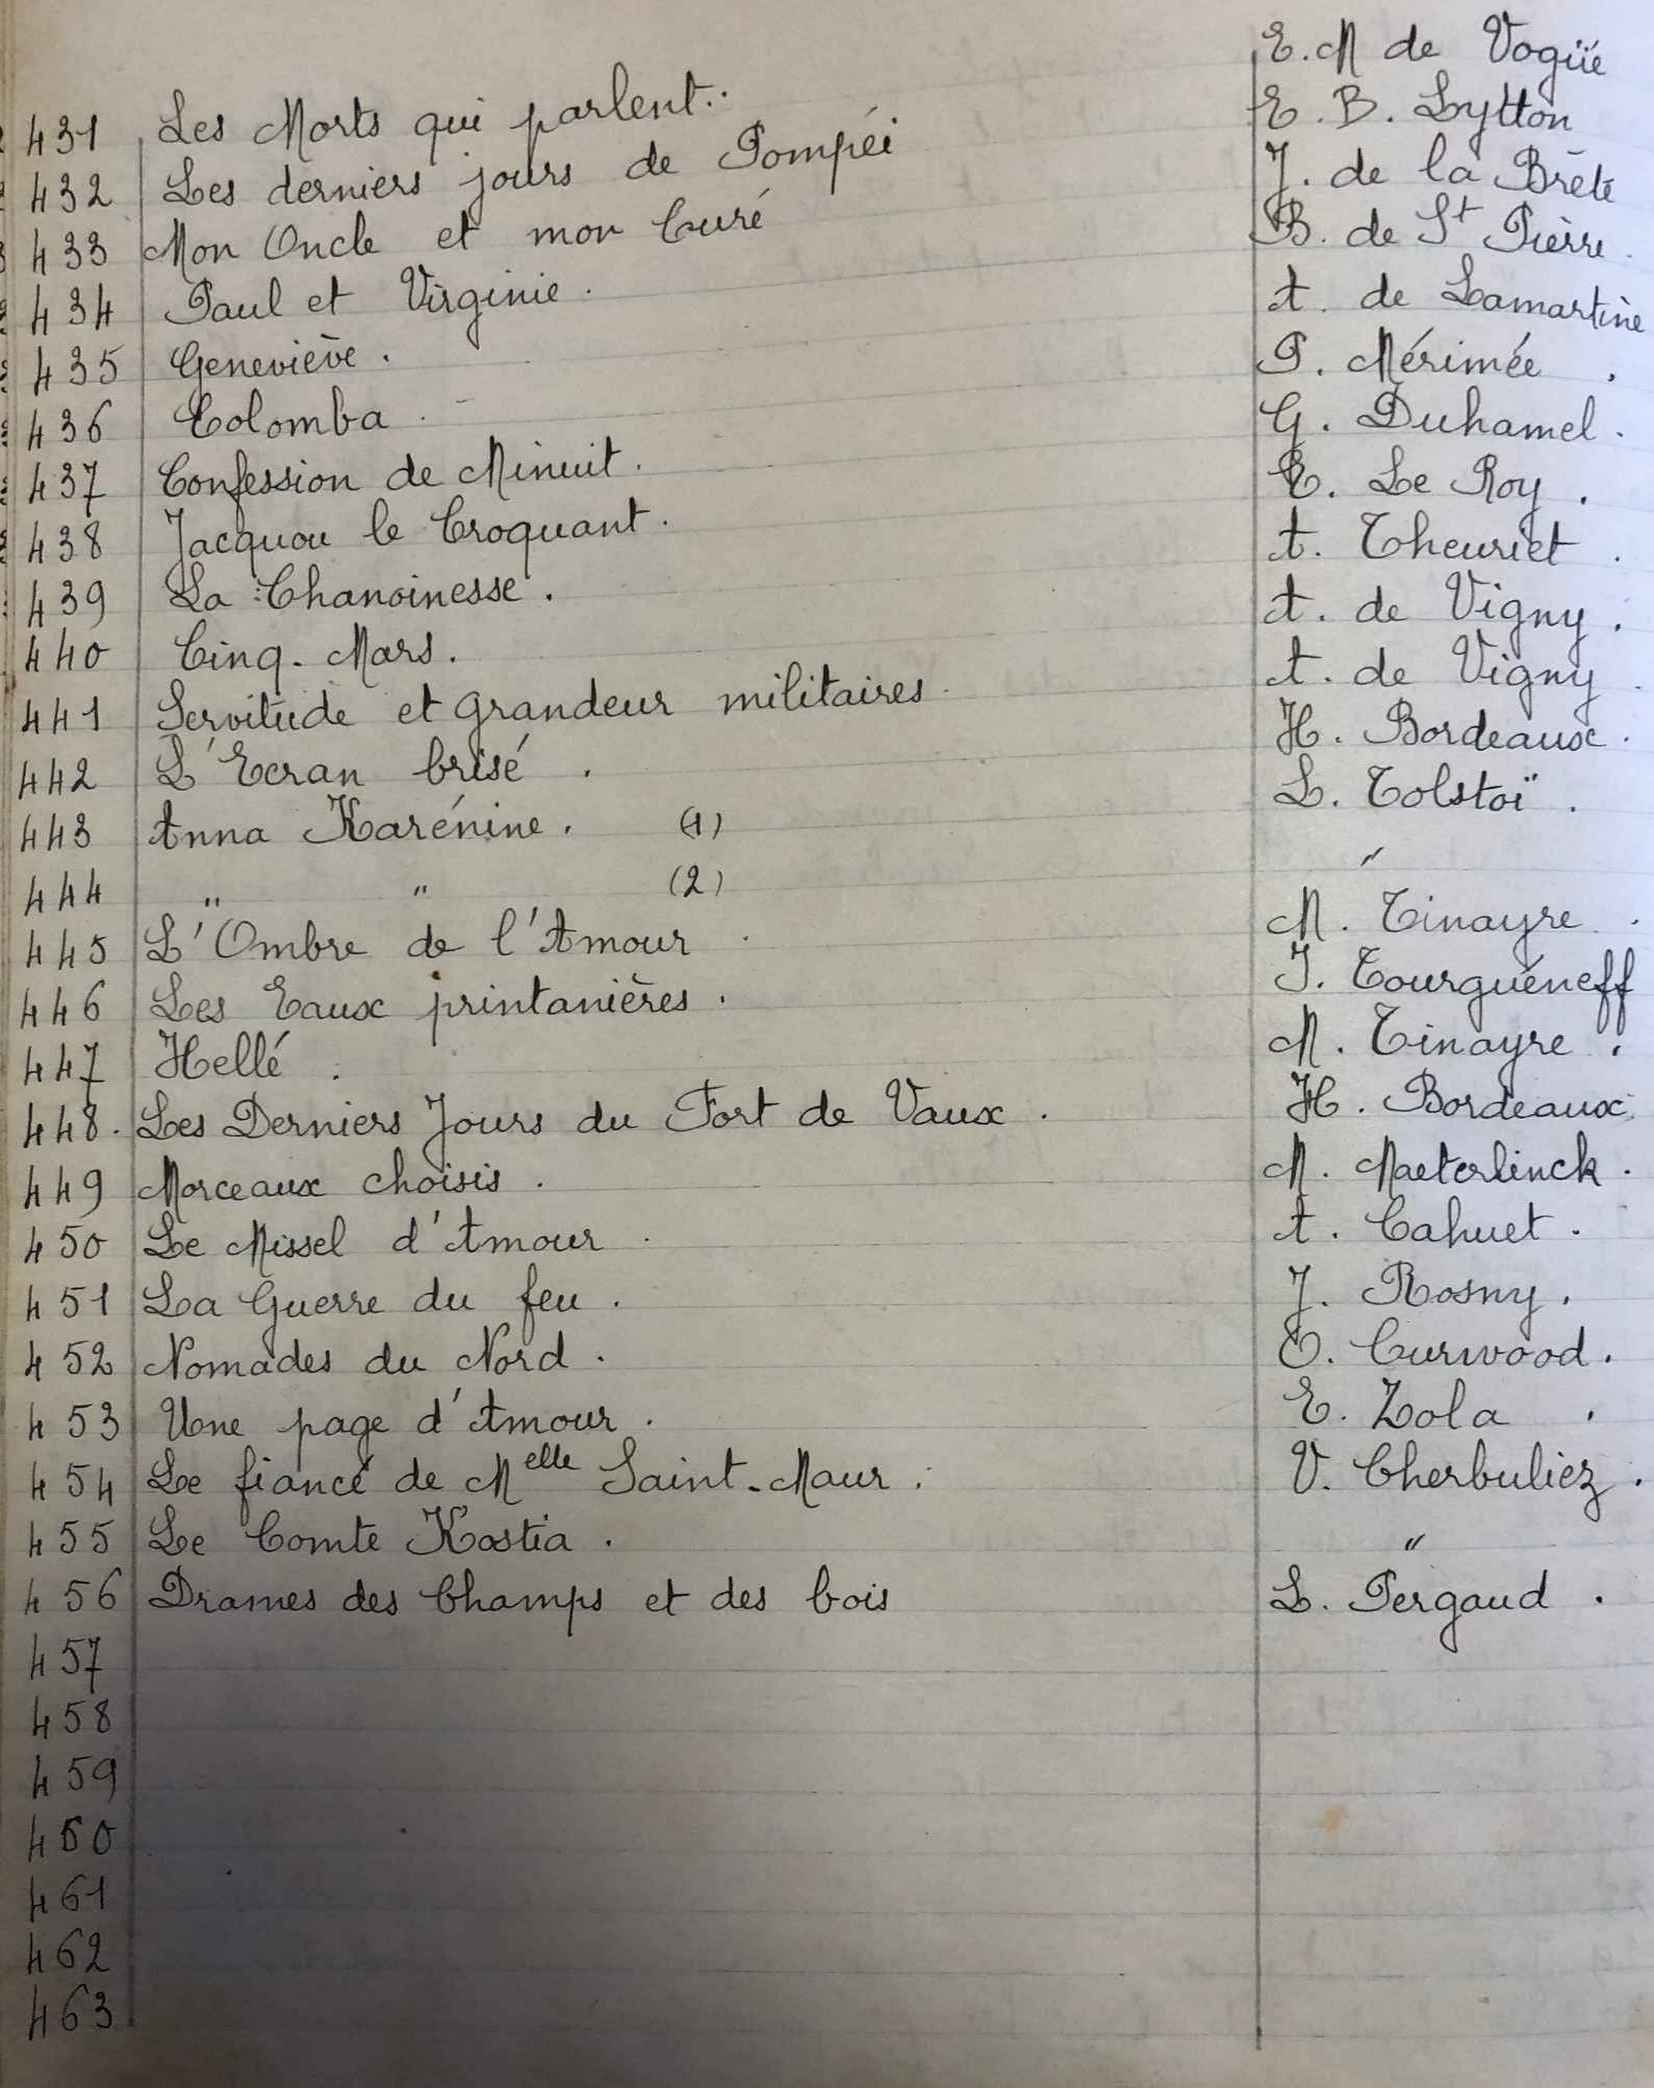 431 Les Morts qui parlent.. E. M de Vogüé
432 Les derniers jours de Pompéi E. B. Lytton
433 Mon Oncle et mon Curé J. de la Brète
434 Paul et Virginie. B. de St Pierre.
435 Geneviève. A. de Lamartine
436 Colomba. P. Mérimée.
437 Confession de Minuit. G. Duhamel.
438 Jacquou le Croquant. E. Le Roy.
439 La Chanoinesse. A. Theuriet.
440 Cinq-Mars. A. de Vigny.
441 Servitude et grandeur militaires. A. de Vigny.
442 L'Ecran brisé. H. Bordeaux.
443 Anna Karénine. (1) L. Tolstoï.
444 " " (2) "
445 L'Ombre de l'Amour. M. Tinayre.
446 Les Eaux printanières. I. Tourguéneff
447 Hellé. M. Tinayre.
448. Les Derniers Jours du Fort de Vaux. H. Bordeaux.
449 Morceaux choisis. M. Maeterlinck.
450 Le Missel d'Amour. A. Cahuet.
451 La Guerre du feu. J. Rosny.
452 Nomades du Nord. O. Curwood.
453 Une page d'Amour. E. Zola.
454 Le fiancé de Melle Saint-Maur. V. Cherbuliez.
455 Le Comte Kostia. "
456 Drames des Champs et des bois L. Pergaud.
457
458
459
460
461
462
463